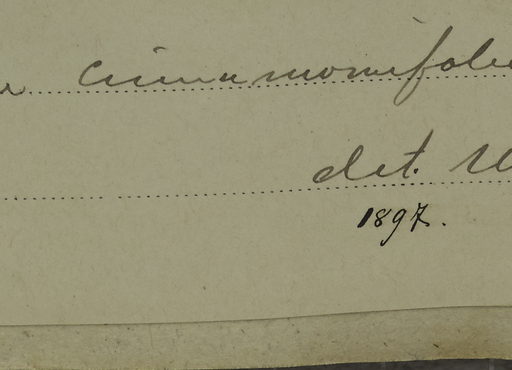 cinnamomifoli
det.
1897.